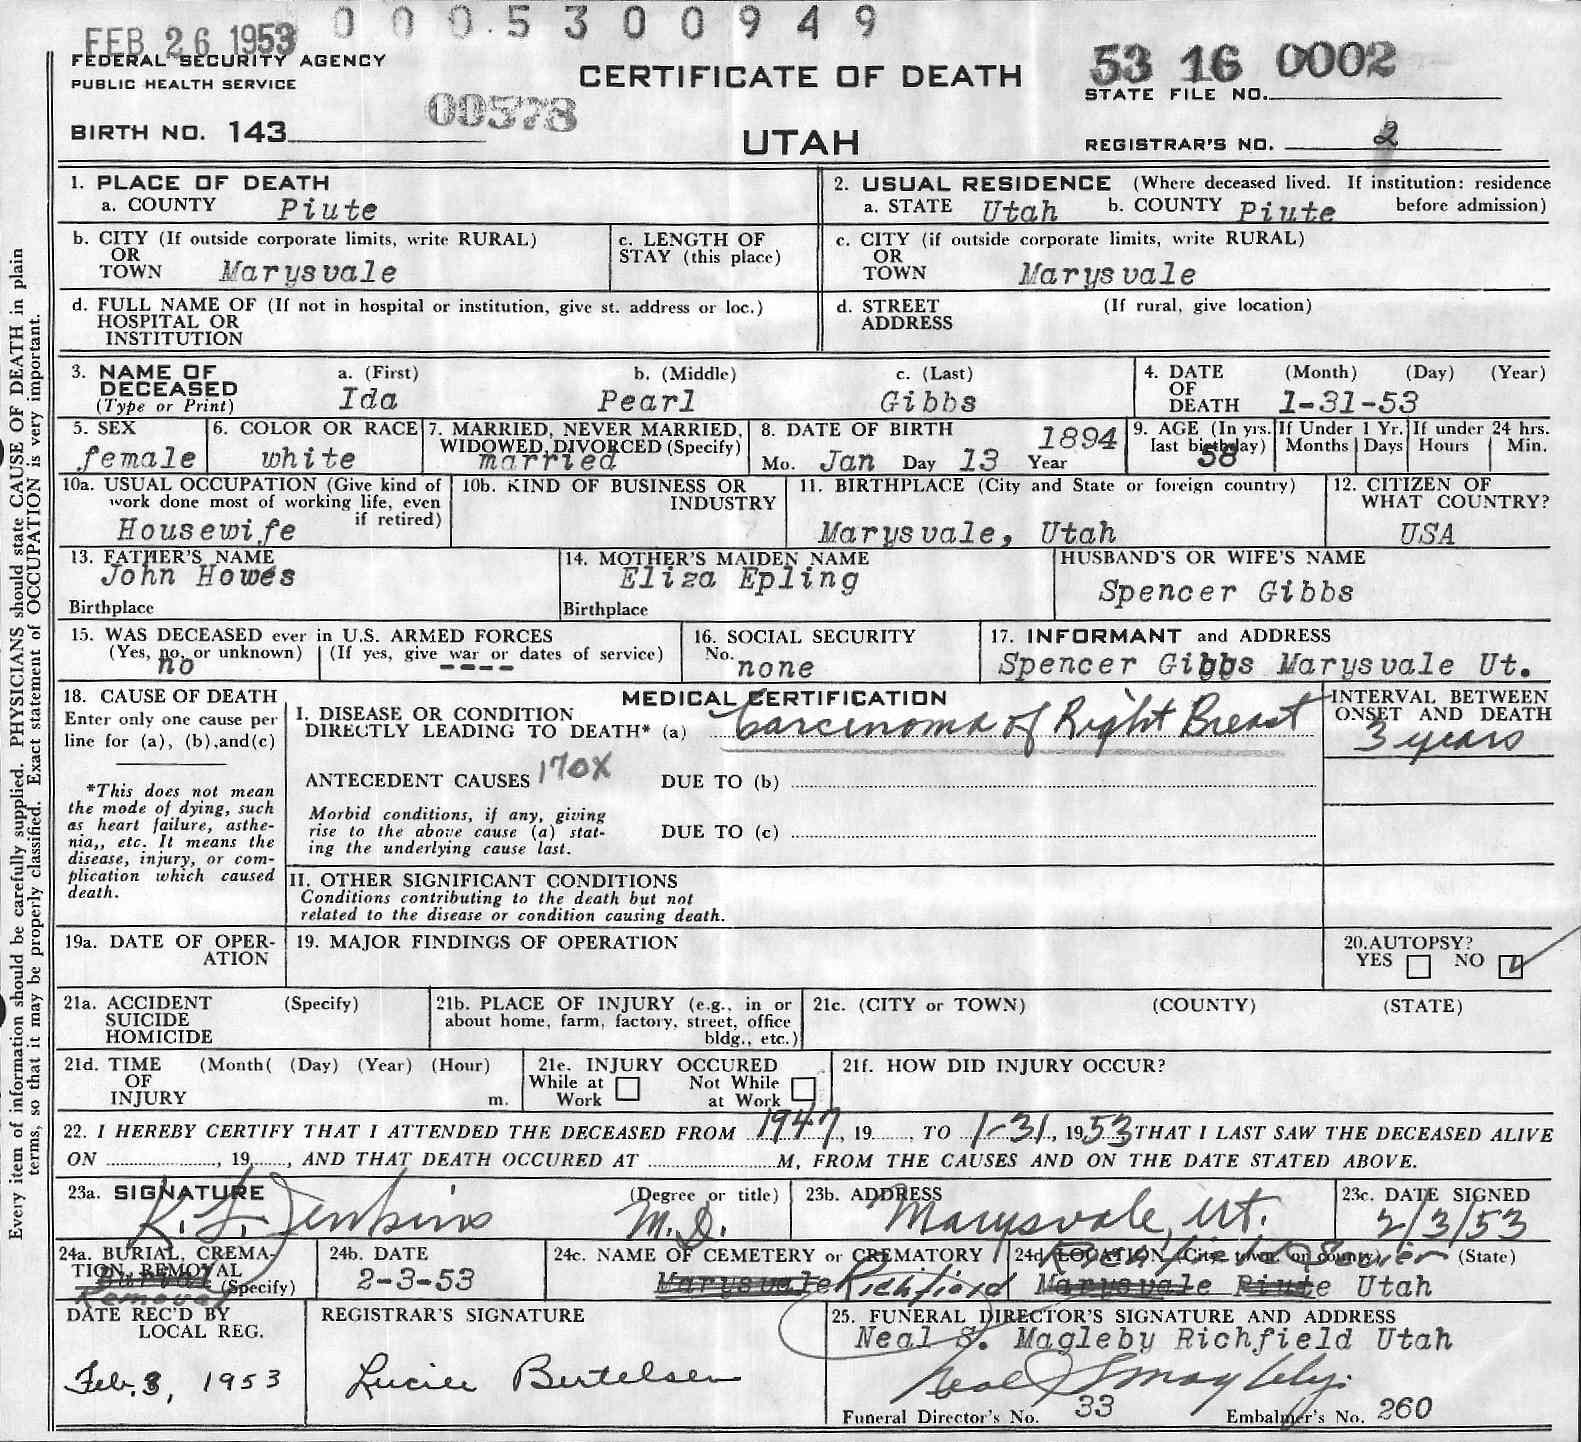 0 0 0 5 3 0 0 9 4 9
FEB 26 1953
FEDERAL SECURITY AGENCY
PUBLIC HEALTH SERVICE
CERTIFICATE OF DEATH
53 16 0002
STATE FILE NO.
00578
BIRTH NO. 143
UTAH
REGISTRAR'S NO. 2
1. PLACE OF DEATH
a. COUNTY Piute
2. USUAL RESIDENCE (Where deceased lived. If institution: residence before admission)
a. STATE Utah b. COUNTY Piute
b. CITY (If outside corporate limits, write RURAL)
OR
TOWN Marysvale
c. LENGTH OF
STAY (this place)
c. CITY (if outside corporate limits, write RURAL)
OR
TOWN Marysvale
d. FULL NAME OF (If not in hospital or institution, give st. address or loc.)
HOSPITAL OR
INSTITUTION
d. STREET (If rural, give location)
ADDRESS
3. NAME OF
DECEASED
(Type or Print)
a. (First) b. (Middle) c. (Last)
Ida Pearl Gibbs
4. DATE (Month) (Day) (Year)
OF
DEATH 1-31-53
5. SEX
female
6. COLOR OR RACE
white
7. MARRIED, NEVER MARRIED,
WIDOWED, DIVORCED (Specify)
married
8. DATE OF BIRTH 1894
Mo. Jan Day 13 Year
9. AGE (In yrs. last birthday)
58
If Under 1 Yr.
Months Days
If under 24 hrs.
Hours Min.
10a. USUAL OCCUPATION (Give kind of
work done most of working life, even
if retired)
Housewife
10b. KIND OF BUSINESS OR
INDUSTRY
11. BIRTHPLACE (City and State or foreign country)
Marysvale, Utah
12. CITIZEN OF
WHAT COUNTRY?
USA
13. FATHER'S NAME
John Howes
Birthplace
14. MOTHER'S MAIDEN NAME
Eliza Epling
Birthplace
HUSBAND'S OR WIFE'S NAME
Spencer Gibbs
15. WAS DECEASED ever in U.S. ARMED FORCES
(Yes, no, or unknown) (If yes, give war or dates of service)
no ----
16. SOCIAL SECURITY
No.
none
17. INFORMANT and ADDRESS
Spencer Gibbs Marysvale Ut.
18. CAUSE OF DEATH
Enter only one cause per
line for (a), (b),and(c)
*This does not mean
the mode of dying, such
as heart failure, asthe-
nia,, etc. It means the
disease, injury, or com-
plication which caused
death.
MEDICAL CERTIFICATION
I. DISEASE OR CONDITION
DIRECTLY LEADING TO DEATH* (a) Carcinoma of Right Breast
INTERVAL BETWEEN
ONSET AND DEATH
3 years
ANTECEDENT CAUSES 170X DUE TO (b)
Morbid conditions, if any, giving
rise to the above cause (a) stat-
ing the underlying cause last.
DUE TO (c)
II. OTHER SIGNIFICANT CONDITIONS
Conditions contributing to the death but not
related to the disease or condition causing death.
19a. DATE OF OPER-
ATION
19. MAJOR FINDINGS OF OPERATION
20.AUTOPSY?
YES NO
21a. ACCIDENT (Specify)
SUICIDE
HOMICIDE
21b. PLACE OF INJURY (e.g., in or
about home, farm, factory, street, office
bldg., etc.)
21c. (CITY or TOWN) (COUNTY) (STATE)
21d. TIME (Month( (Day) (Year) (Hour)
OF
INJURY m.
21e. INJURY OCCURED
While at Work Not While at Work
21f. HOW DID INJURY OCCUR?
22. I HEREBY CERTIFY THAT I ATTENDED THE DECEASED FROM 1947, 19, TO 1-31, 1953 THAT I LAST SAW THE DECEASED ALIVE
ON , 19, AND THAT DEATH OCCURED AT M, FROM THE CAUSES AND ON THE DATE STATED ABOVE.
23a. SIGNATURE (Degree or title)
Jenkins M.D.
23b. ADDRESS
Marysvale, Ut.
23c. DATE SIGNED
2/3/53
24a. BURIAL, CREMA-
TION, REMOVAL
(Specify)
Burial
Removal
24b. DATE
2-3-53
24c. NAME OF CEMETERY or CREMATORY
Marysvale Richfield
24d LOCATION (City, town, or county) (State)
Richfield Sevier
Marysvale Piute Utah
DATE REC'D BY
LOCAL REG.
Feb. 3, 1953
REGISTRAR'S SIGNATURE
Lucile Bertelsen
25. FUNERAL DIRECTOR'S SIGNATURE AND ADDRESS
Neal S. Magleby Richfield Utah
Neal S Magleby
Funeral Director's No. 33 Embalmer's No. 260
Every item of information should be carefully supplied. PHYSICIANS should state CAUSE OF DEATH in plain
terms, so that it may be properly classified. Exact statement of OCCUPATION is very important.